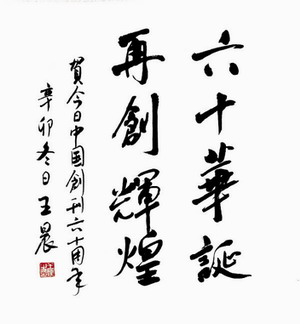 六十華誕
再創輝煌
賀今日中国創刊六十周年
辛卯冬日王晨